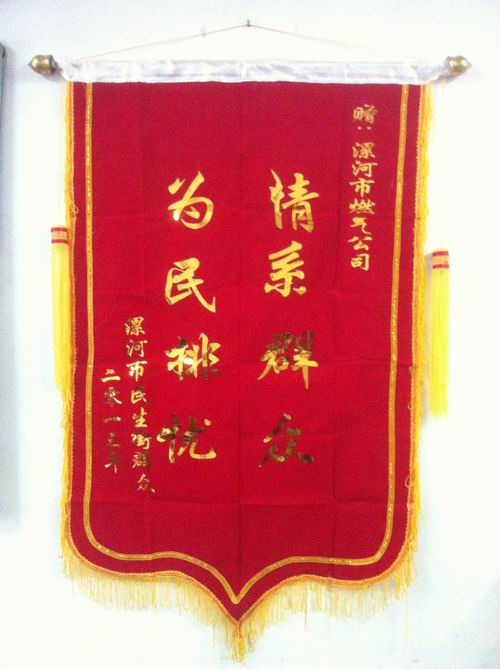 赠:漯河市燃气公司
情系群众
为民排忧
漯河市民生街群众
二零一三年